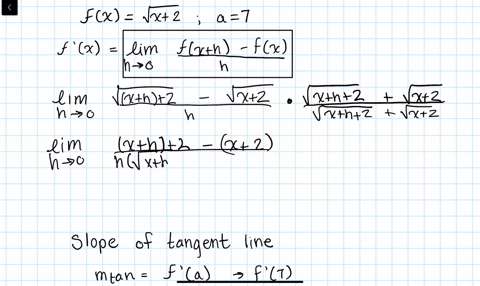 f(x) = √x+2 ; a=7
f'(x) = lim h→0 f(x+h) - f(x) / h
lim h→0 √(x+h)+2 - √x+2 / h • √x+h+2 + √x+2 / √x+h+2 + √x+2
lim h→0 (x+h)+2 - (x+2) / h(√x+h
Slope of tangent line
mtan = f'(a) → f'(7)